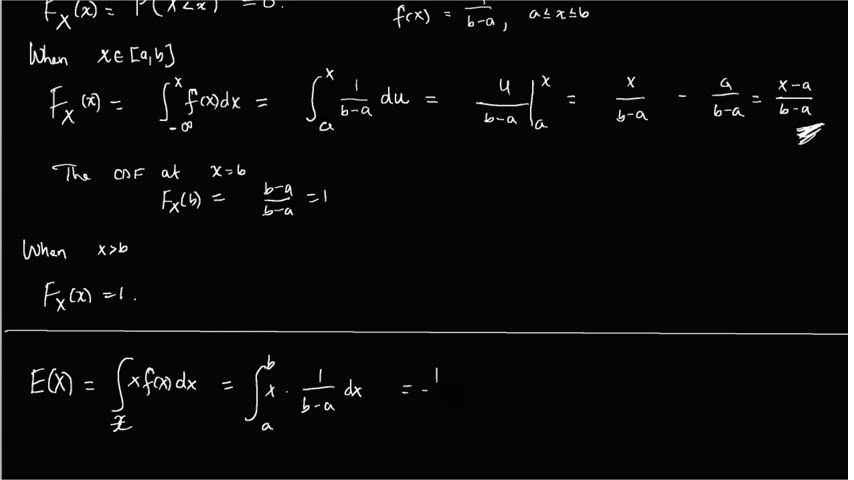 F_X(x) = P(X<x) = 0.
f(x) = 1/(b-a), a ≤ x ≤ b
When x ∈ [a,b]
F_X(x) = ∫_{-∞}^{x} f(x)dx = ∫_{a}^{x} 1/(b-a) du = u/(b-a) |_{a}^{x} = x/(b-a) - a/(b-a) = (x-a)/(b-a)
The CDF at x=b
F_X(b) = (b-a)/(b-a) = 1
When x>b
F_X(x) = 1.
E(X) = ∫_x x f(x) dx = ∫_{a}^{b} x · 1/(b-a) dx = 1